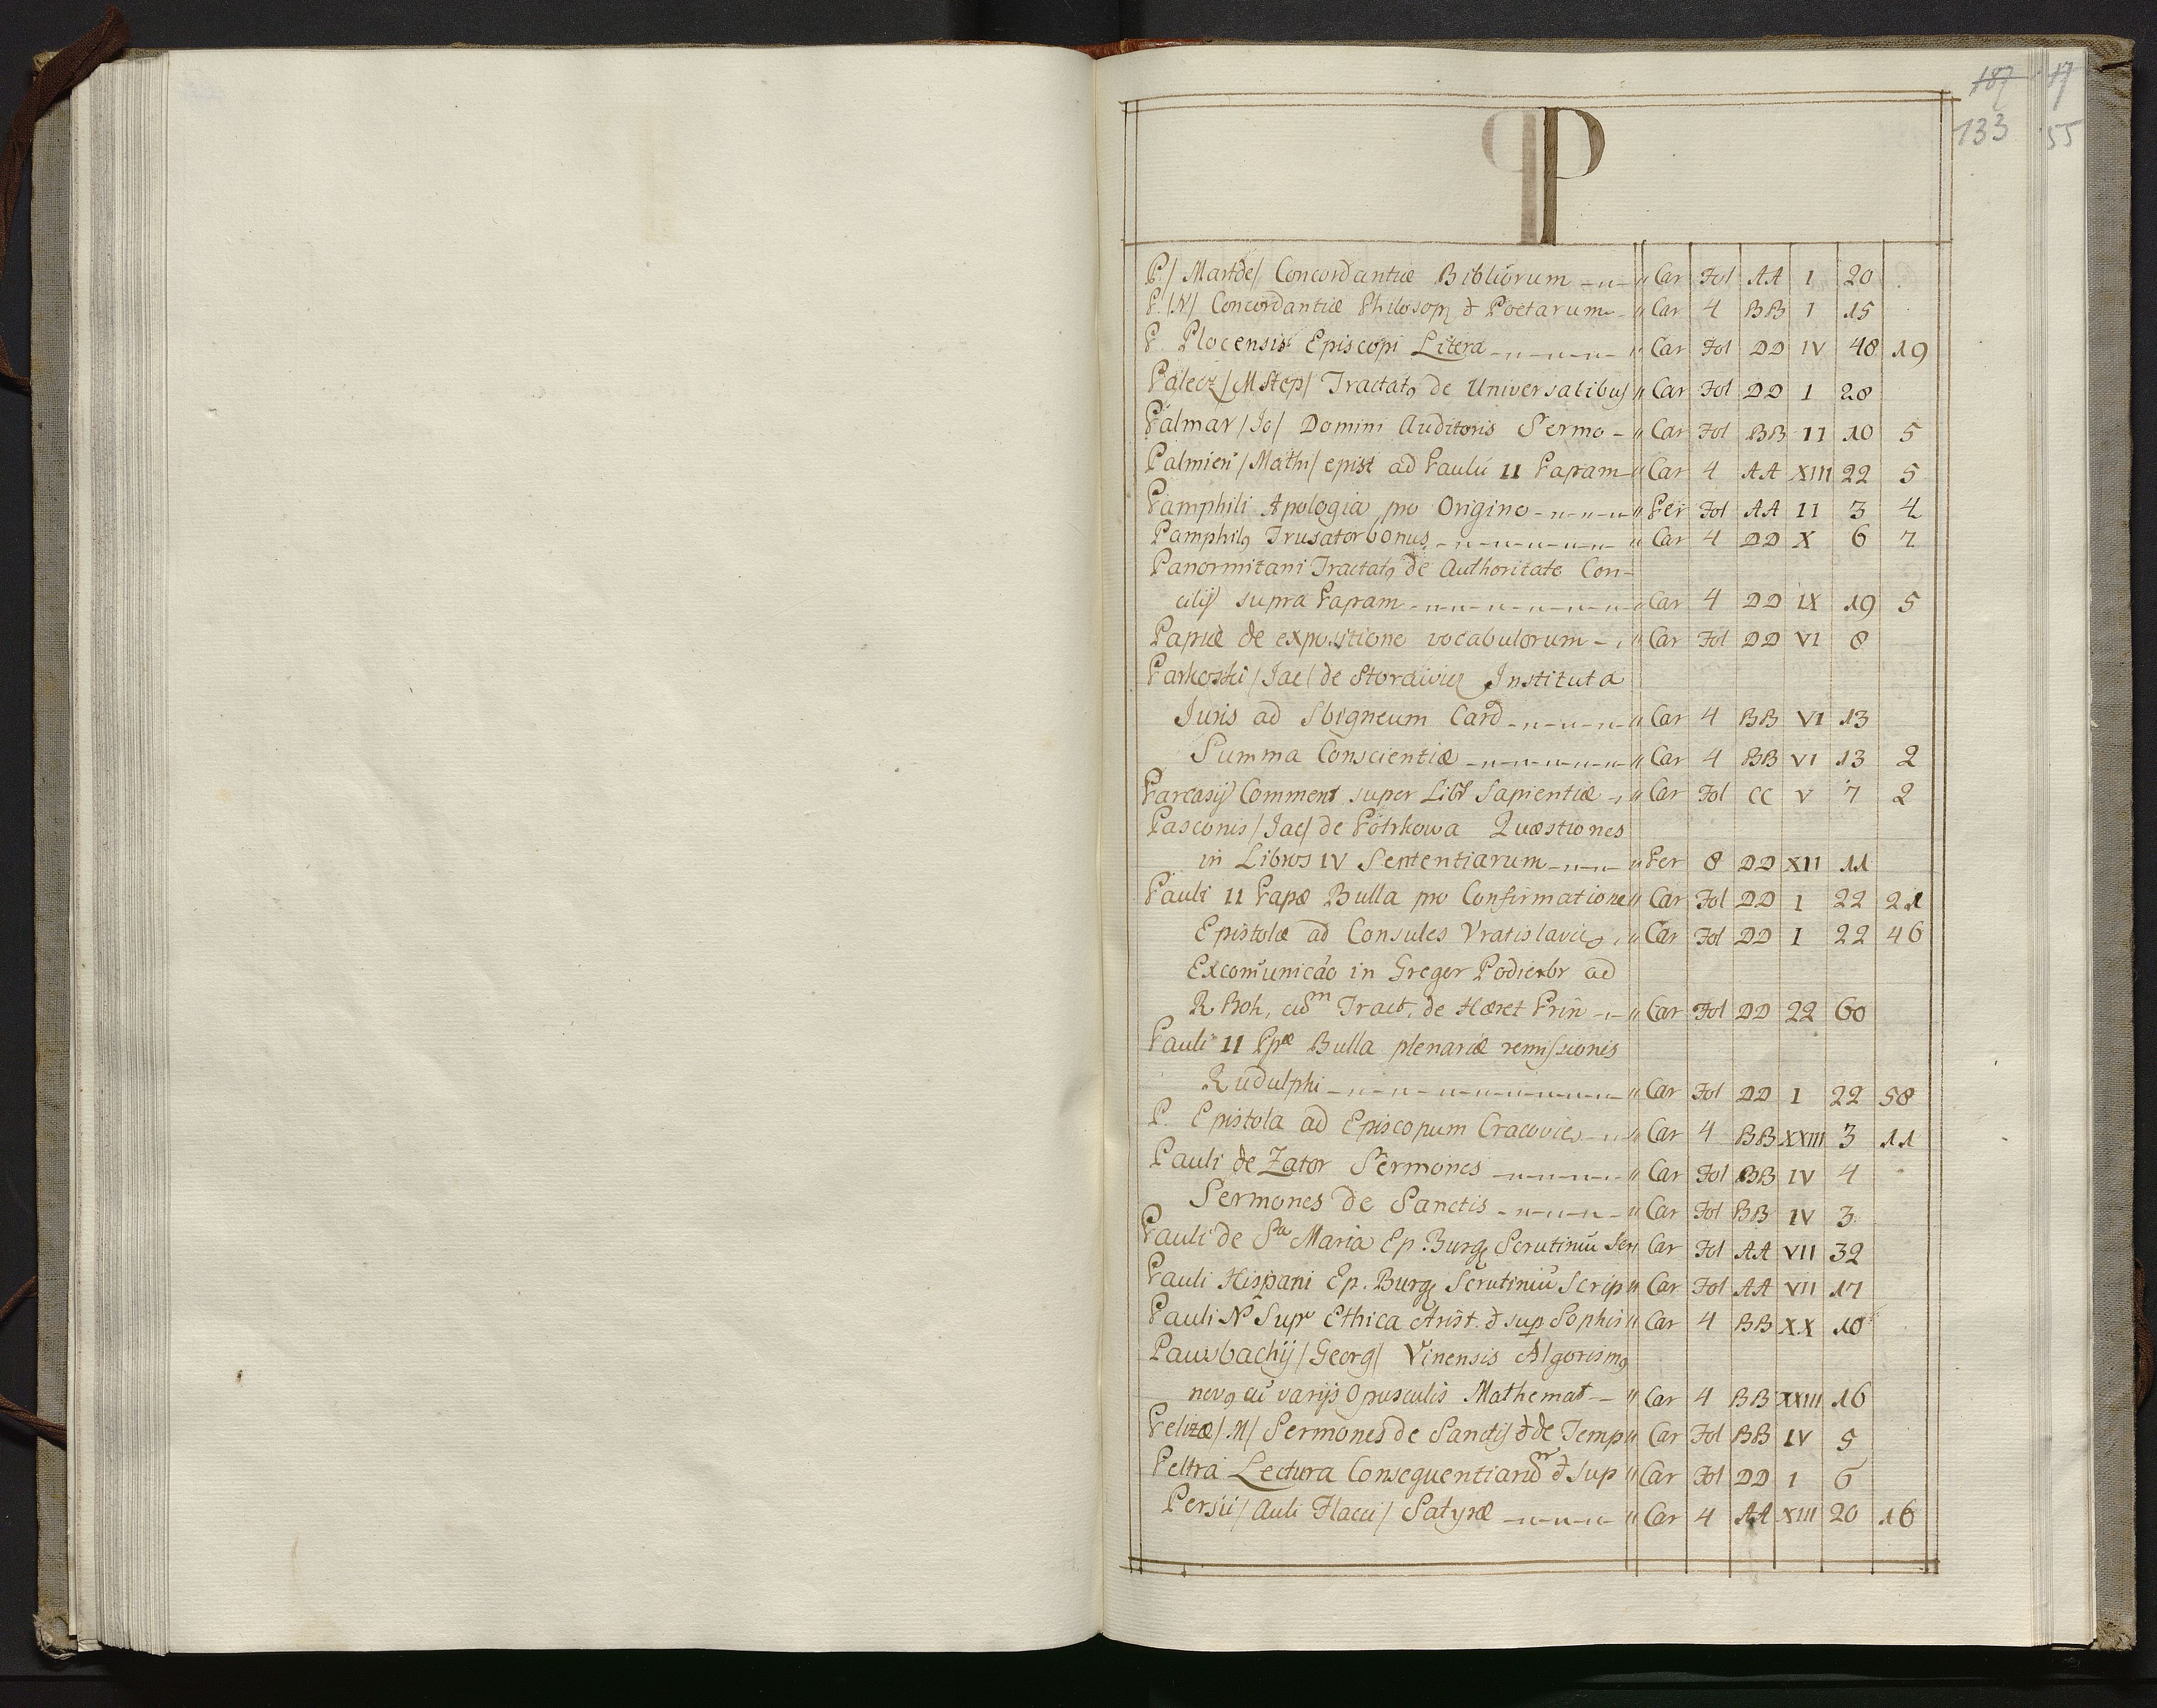 187 17
133 55
P
P./ Mart de/ Concordantiæ Bibliorum " Car Fol AA I 20
P. /N/ Concordantiæ Philosop & Poetarum " Car 4 BB I 15
P. Plocensis Episcopi Litera " Car Fol DD IV 48 19
Palecz / M Step/ Tractat9 de Universalibus " Car Fol DD I 28
Palmar / Jo/ Domini Auditoris Sermo " Car Fol BB II 10 5
Palmieri / Math/ epist ad Paulū II Papam " Car 4 AA XIII 22 5
Pamphili Apologia pro Origine " Per Fol AA II 3 4
Pamphil9 Trusator bonus " Car 4 DD X 6 7
Panormitani Tractat9 de Authoritate Con-
cilij supra Papam " Car 4 DD IX 19 5
Papiæ de expositione vocabulorum " Car Fol DD VI 8
Parkoski / Jac/ de Institута
Juris ad Sbigneum Card " Car 4 BB VI 13
Summa Conscientiæ " Car 4 BB VI 13 2
Parcasij Comment super Libr Sapientiæ " Car Fol CC V 7 2
Pasconis / Jac/ de Potrkowa Quæstiones
in Libros IV Sententiarum " Per 8 DD XII 11
Pauli II Papæ Bulla pro Confirmatione " Car Fol DD I 22 21
Epistolæ ad Consules Vratislavie " Car Fol DD I 22 46
Excom̄unicāo in Greger Podiebr ad
R. Boh, cum Tract. de Hæret Prin " Car Fol DD 22 60
Pauli II Ppæ Bulla plenariæ remissionis
Rudulphi " Car Fol DD I 22 58
P. Epistola ad Episcopum Cracovie " Car 4 BB XXIII 3 11
Pauli de Zator Sermones " Car Fol BB IV 4
Sermones de Sanctis " Car Fol BB IV 3
Pauli de Sta Maria Ep. Burg Scrutiniū Scri Car Fol AA VII 32
Pauli Hispani Ep. Burg Scrutiniū Scrip " Car Fol AA VII 17
Pauli Supr Ethica Arist. & sup Sophis " Car 4 BB XX 10
Paurbachij / Georg/ Vinensis Algorism9
nov9 cū varijs Opusculis Mathemat " Car 4 BB XXIII 16
Pelizæ / M/ Sermones de Sanctis & de Temp " Car Fol BB IV 5
Peltra Lectura Consequentiarum & Sup " Car Fol DD I 6
Persii / Auli Flacci/ Satyræ " Car 4 AA XIII 20 16